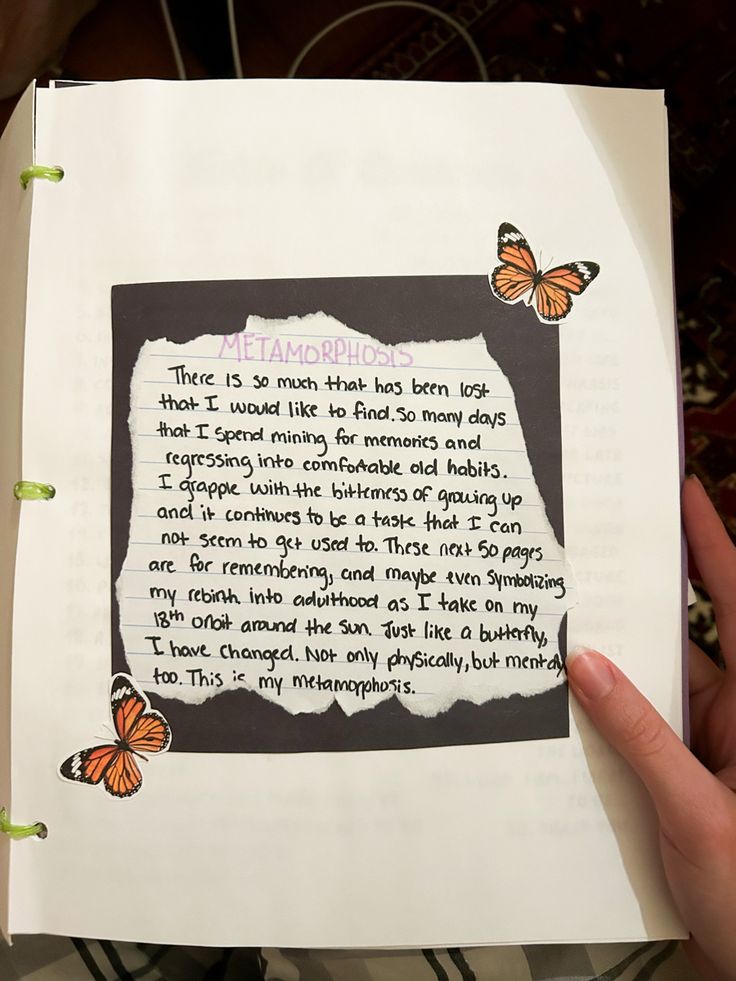 METAMORPHOSIS
There is so much that has been lost
that I would like to find. So many days
that I spend mining for memories and
regressing into comfortable old habits.
I grapple with the bitterness of growing up
and it continues to be a task that I can
not seem to get used to. These next 50 pages
are for remembering, and maybe even symbolizing
my rebirth into adulthood as I take on my
18th orbit around the sun. Just like a butterfly,
I have changed. Not only physically, but mentally
too. This is my metamorphosis.